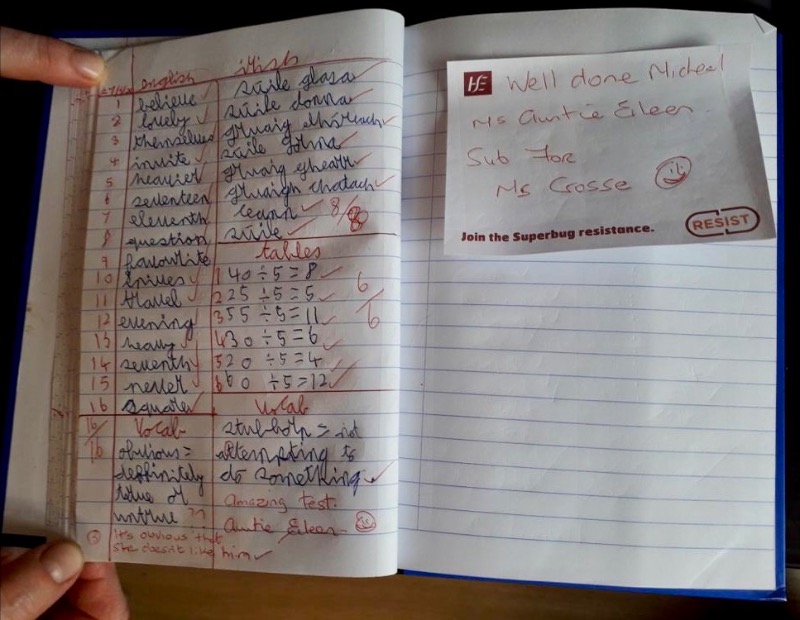 english
irish
1 believe
2 lovely
3 themselves
4 invite
5 heavier
6 seventeen
7 eleventh
8 question
9 favourite
10 knives
11 travel
12 evening
13 heavy
14 seventh
15 never
16 square
16/16
súile glasa
súile donna
gruaig
súile gorma
gruaig ghearr
gruaigh chatach
ceann
súile
8/8
tables
1 40 ÷ 5 = 8
2 25 ÷ 5 = 5
3 55 ÷ 5 = 11
4 30 ÷ 5 = 6
5 20 ÷ 5 = 4
6 60 ÷ 5 = 12
6/6
Vocab
obvious =
deffinitely
true or
untrue ??
It's obvious that
she doesn't like him
Vocab
= not
attempting to
do something
Amazing test.
Auntie Eileen
HE Well done Micheal
Ms Auntie Eileen
Sub For
Ms Crosse
Join the Superbug resistance.
RESIST